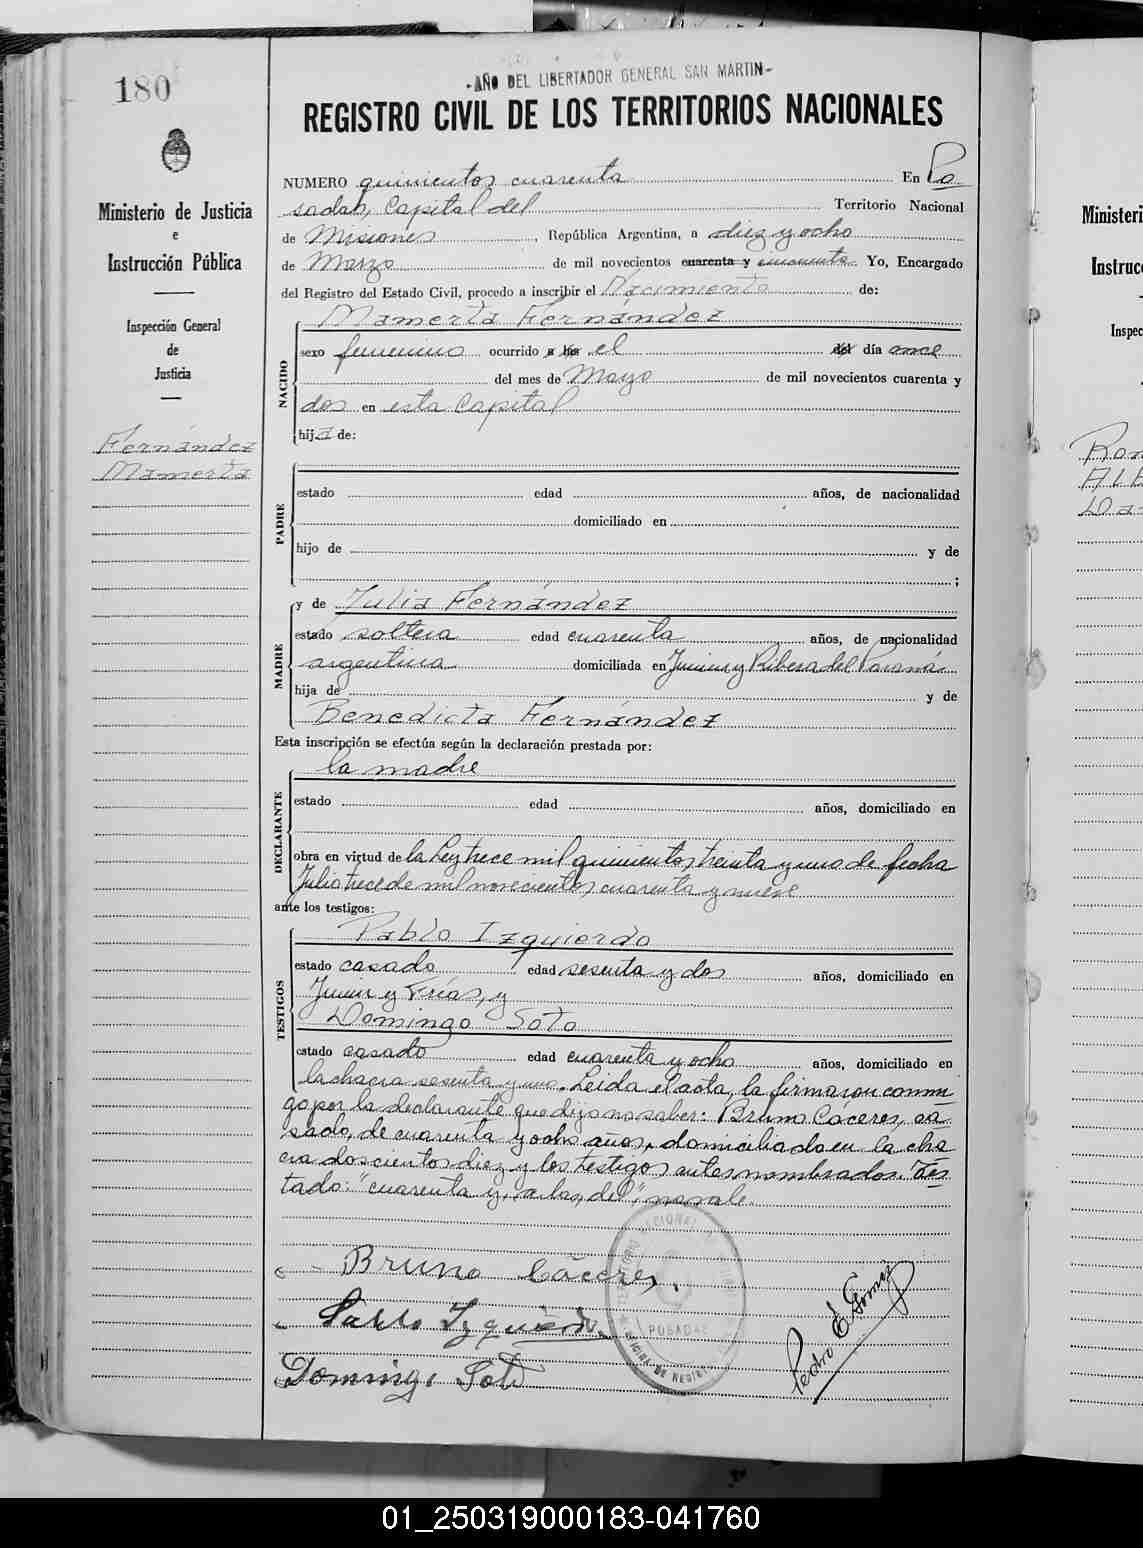 180
-AÑO DEL LIBERTADOR GENERAL SAN MARTIN-
REGISTRO CIVIL DE LOS TERRITORIOS NACIONALES
Ministerio de Justicia
e
Instrucción Pública
Inspección General
de
Justicia
Fernández
Mamerta
NUMERO quinientos cuarenta En Po
sadas, Capital del Territorio Nacional
de Misiones, República Argentina, a diez y ocho
de Marzo de mil novecientos cuarenta y cincuenta. Yo, Encargado
del Registro del Estado Civil, procedo a inscribir el Nacimiento de:
Mamerta Fernández
NACIDO
sexo femenino ocurrido a las el del día once
del mes de Mayo de mil novecientos cuarenta y
dos en esta Capital
hija de:
PADRE
estado edad años, de nacionalidad
domiciliado en
hijo de y de
;
MADRE
y de Julia Fernández
estado soltera edad cuarenta años, de nacionalidad
argentina domiciliada en Junin y Ribera del Paraná
hija de y de
Benedicta Fernández
Esta inscripción se efectúa según la declaración prestada por:
la madre
DECLARANTE
estado edad años, domiciliado en
obra en virtud de la Ley trece mil quinientos treinta y uno de fecha
Julio trece de mil novecientos cuarenta y nueve
ante los testigos:
TESTIGOS
Pablo Izquierdo
estado casado edad sesenta y dos años, domiciliado en
Junin y Frías, y
Domingo Soto
estado casado edad cuarenta y ocho años, domiciliado en
la chacra sesenta y uno. Leida el acta, la firmaron conmi
go por la declarante que dijo no saber: Bruno Cáceres, ca
sado, de cuarenta y ocho años, domiciliado en la cha
cra doscientos diez y los testigos antes nombrados. Tes
tado: "cuarenta y, a las, del", no vale.
Bruno Cáceres.
Pablo Izquierdo
Domingo Soto
POSADAS
Pedro E. Gomez
Ministeri
Instrucc
Inspec
01_250319000183-041760